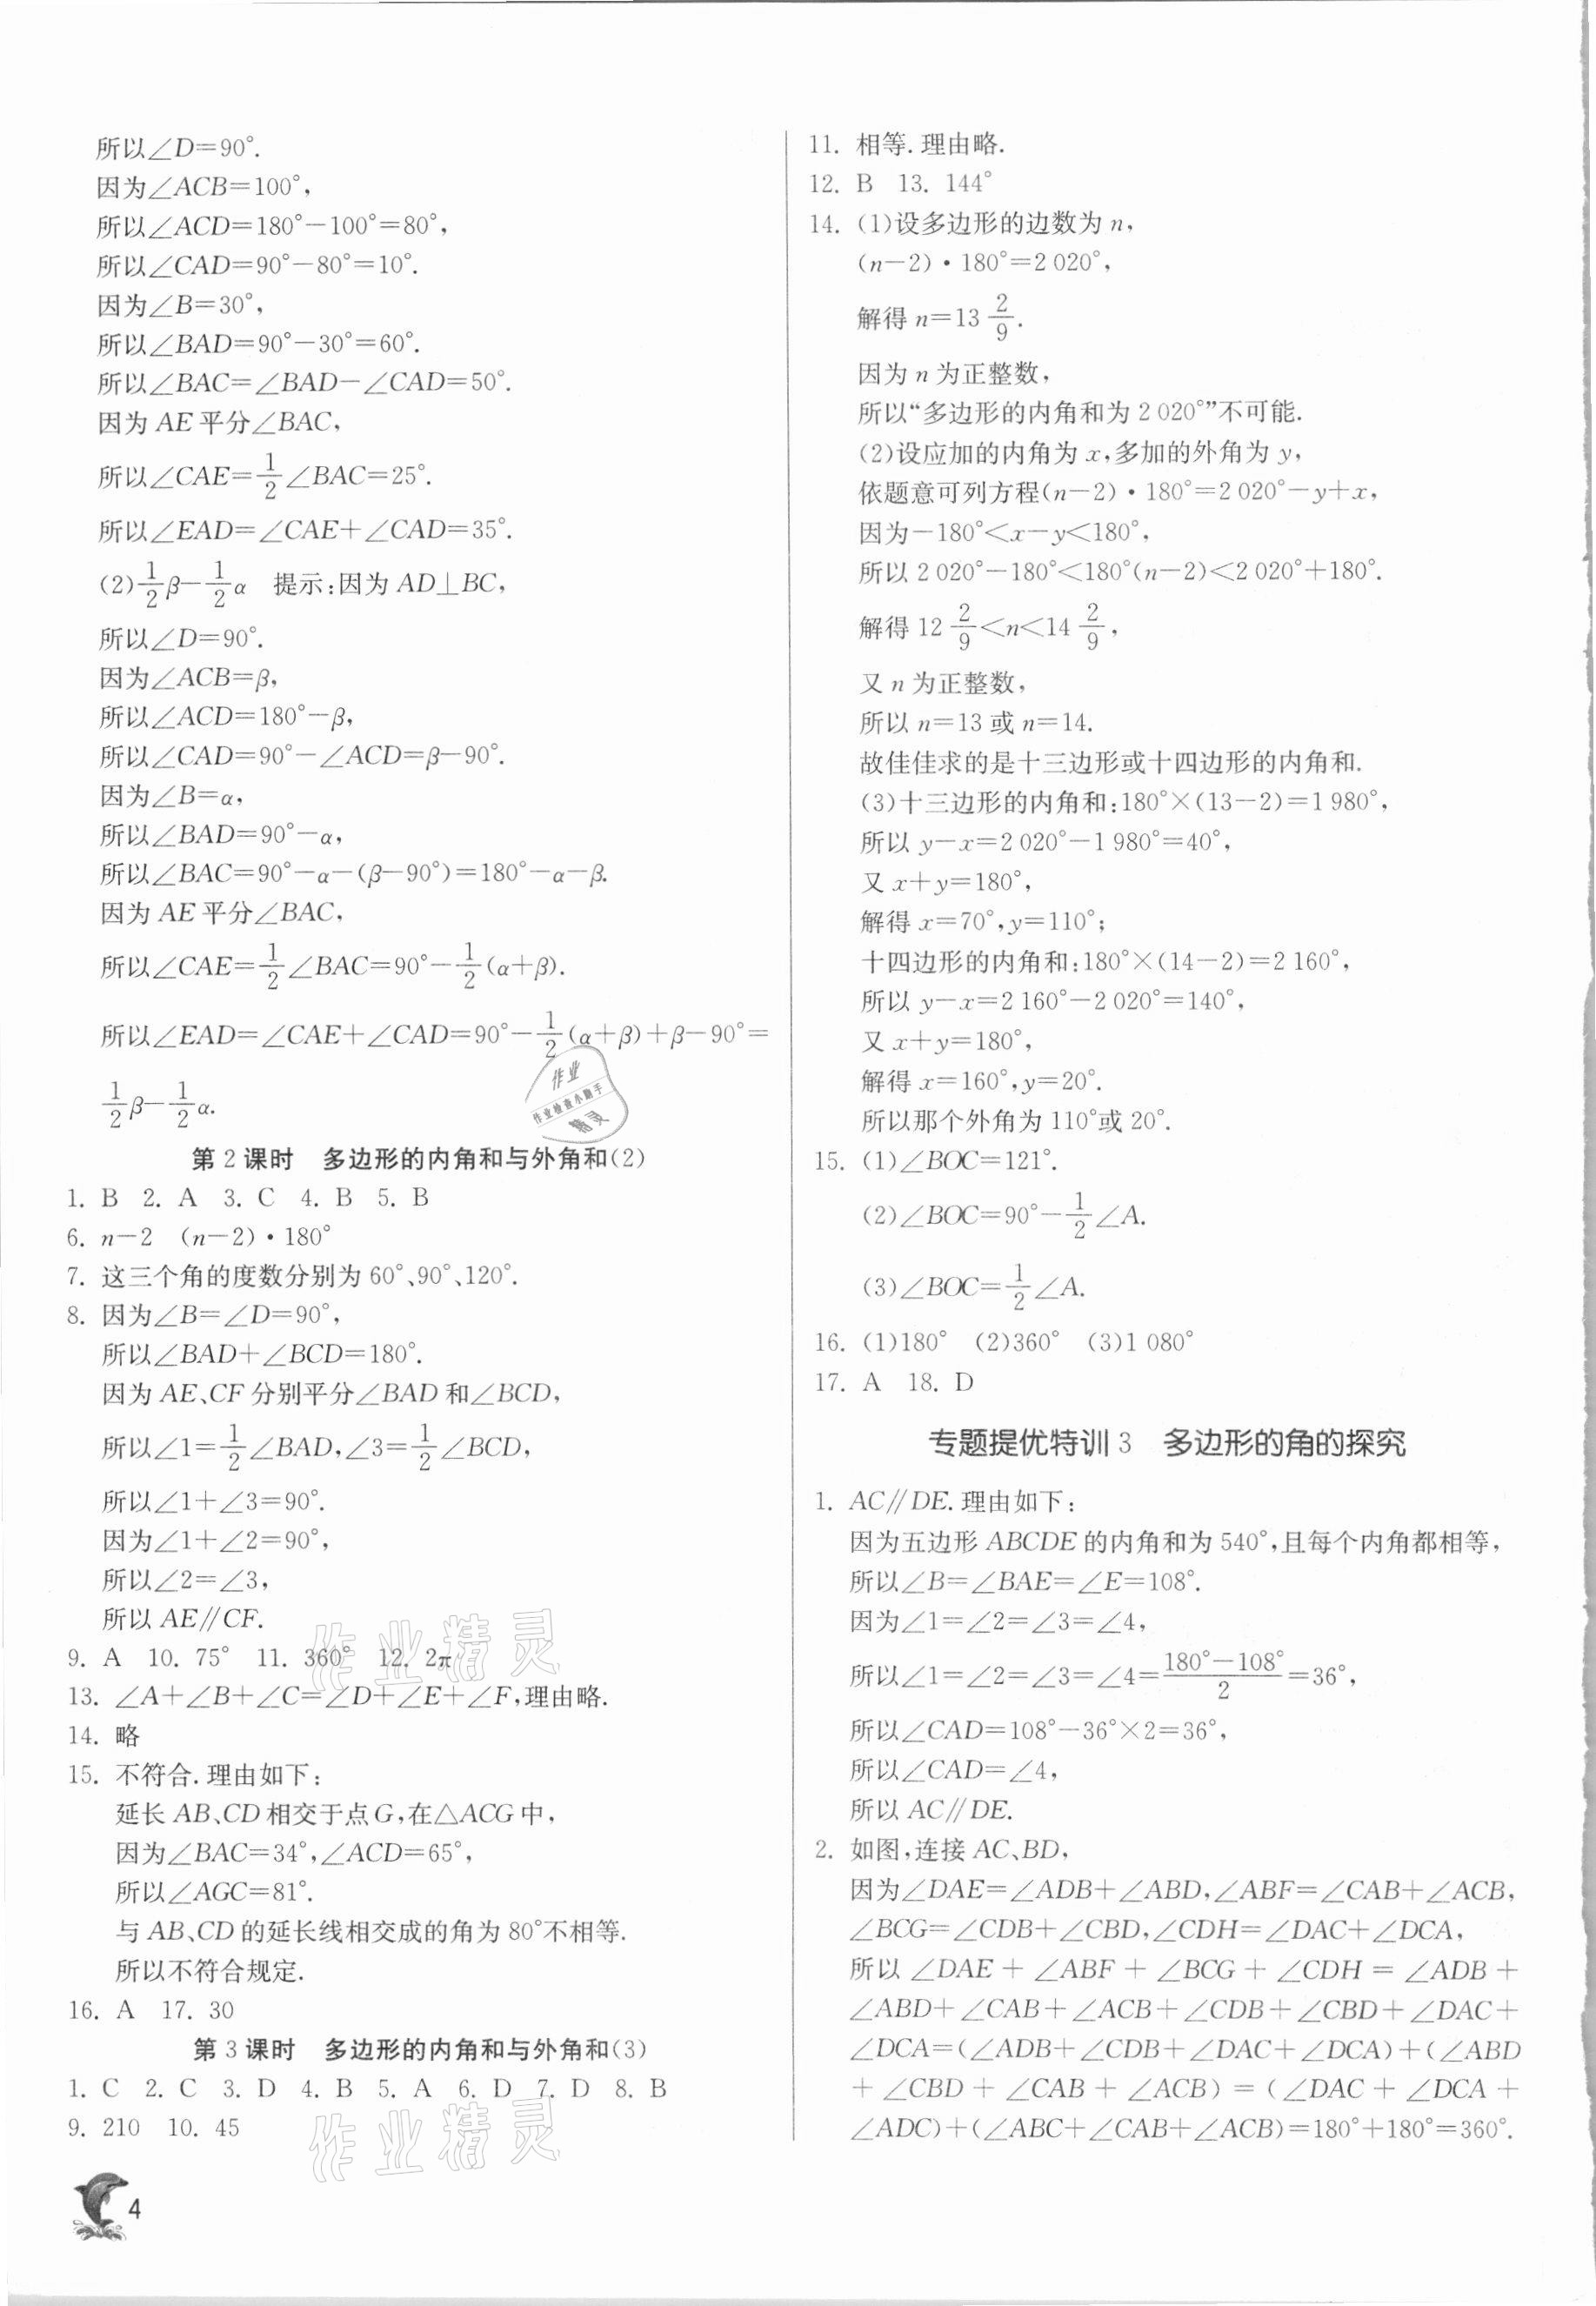 所以∠D=90°.
因为∠ACB=100°,
所以∠ACD=180°-100°=80°,
所以∠CAD=90°-80°=10°.
因为∠B=30°,
所以∠BAD=90°-30°=60°.
所以∠BAC=∠BAD-∠CAD=50°.
因为 AE 平分∠BAC,
所以∠CAE=1/2∠BAC=25°.
所以∠EAD=∠CAE+∠CAD=35°.
(2)1/2β-1/2α 提示:因为 AD⊥BC,
所以∠D=90°.
因为∠ACB=β,
所以∠ACD=180°-β,
所以∠CAD=90°-∠ACD=β-90°.
因为∠B=α,
所以∠BAD=90°-α,
所以∠BAC=90°-α-(β-90°)=180°-α-β.
因为 AE 平分∠BAC,
所以∠CAE=1/2∠BAC=90°-1/2(α+β).
所以∠EAD=∠CAE+∠CAD=90°-1/2(α+β)+β-90°=
1/2β-1/2α.
作业
作业检查小助手
精灵
第 2 课时 多边形的内角和与外角和(2)
1. B 2. A 3. C 4. B 5. B
6. n-2 (n-2)·180°
7. 这三个角的度数分别为 60°、90°、120°.
8. 因为∠B=∠D=90°,
所以∠BAD+∠BCD=180°.
因为 AE、CF 分别平分∠BAD 和∠BCD,
所以∠1=1/2∠BAD,∠3=1/2∠BCD,
所以∠1+∠3=90°.
因为∠1+∠2=90°,
所以∠2=∠3,
所以 AE∥CF.
9. A 10. 75° 11. 360° 12. 2π
13. ∠A+∠B+∠C=∠D+∠E+∠F,理由略.
14. 略
15. 不符合.理由如下:
延长 AB、CD 相交于点 G,在△ACG 中,
因为∠BAC=34°,∠ACD=65°,
所以∠AGC=81°.
与 AB、CD 的延长线相交成的角为 80°不相等.
所以不符合规定.
16. A 17. 30
第 3 课时 多边形的内角和与外角和(3)
1. C 2. C 3. D 4. B 5. A 6. D 7. D 8. B
9. 210 10. 45
作业精灵
作业精灵
4
11. 相等.理由略.
12. B 13. 144°
14. (1)设多边形的边数为 n,
(n-2)·180°=2 020°,
解得 n=13 2/9.
因为 n 为正整数,
所以“多边形的内角和为 2 020°”不可能.
(2)设应加的内角为 x,多加的外角为 y,
依题意可列方程(n-2)·180°=2 020°-y+x,
因为-180°<x-y<180°,
所以 2 020°-180°<180°(n-2)<2 020°+180°.
解得 12 2/9<n<14 2/9,
又 n 为正整数,
所以 n=13 或 n=14.
故佳佳求的是十三边形或十四边形的内角和.
(3)十三边形的内角和:180°×(13-2)=1 980°,
所以 y-x=2 020°-1 980°=40°,
又 x+y=180°,
解得 x=70°,y=110°;
十四边形的内角和:180°×(14-2)=2 160°,
所以 y-x=2 160°-2 020°=140°,
又 x+y=180°,
解得 x=160°,y=20°.
所以那个外角为 110°或 20°.
15. (1)∠BOC=121°.
(2)∠BOC=90°-1/2∠A.
(3)∠BOC=1/2∠A.
16. (1)180° (2)360° (3)1 080°
17. A 18. D
专题提优特训 3 多边形的角的探究
1. AC∥DE.理由如下:
因为五边形 ABCDE 的内角和为 540°,且每个内角都相等,
所以∠B=∠BAE=∠E=108°.
因为∠1=∠2=∠3=∠4,
所以∠1=∠2=∠3=∠4=(180°-108°)/2=36°,
所以∠CAD=108°-36°×2=36°,
所以∠CAD=∠4,
所以 AC∥DE.
2. 如图,连接 AC、BD,
因为∠DAE=∠ADB+∠ABD,∠ABF=∠CAB+∠ACB,
∠BCG=∠CDB+∠CBD,∠CDH=∠DAC+∠DCA,
所以 ∠DAE + ∠ABF + ∠BCG + ∠CDH = ∠ADB +
∠ABD+∠CAB+∠ACB+∠CDB+∠CBD+∠DAC+
∠DCA=(∠ADB+∠CDB+∠DAC+∠DCA)+(∠ABD
+∠CBD+∠CAB+∠ACB)=(∠DAC+∠DCA+
∠ADC)+(∠ABC+∠CAB+∠ACB)=180°+180°=360°.